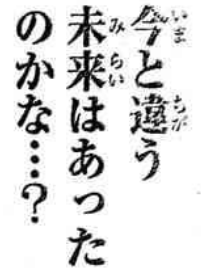 今と違う
未来はあった
のかな…？